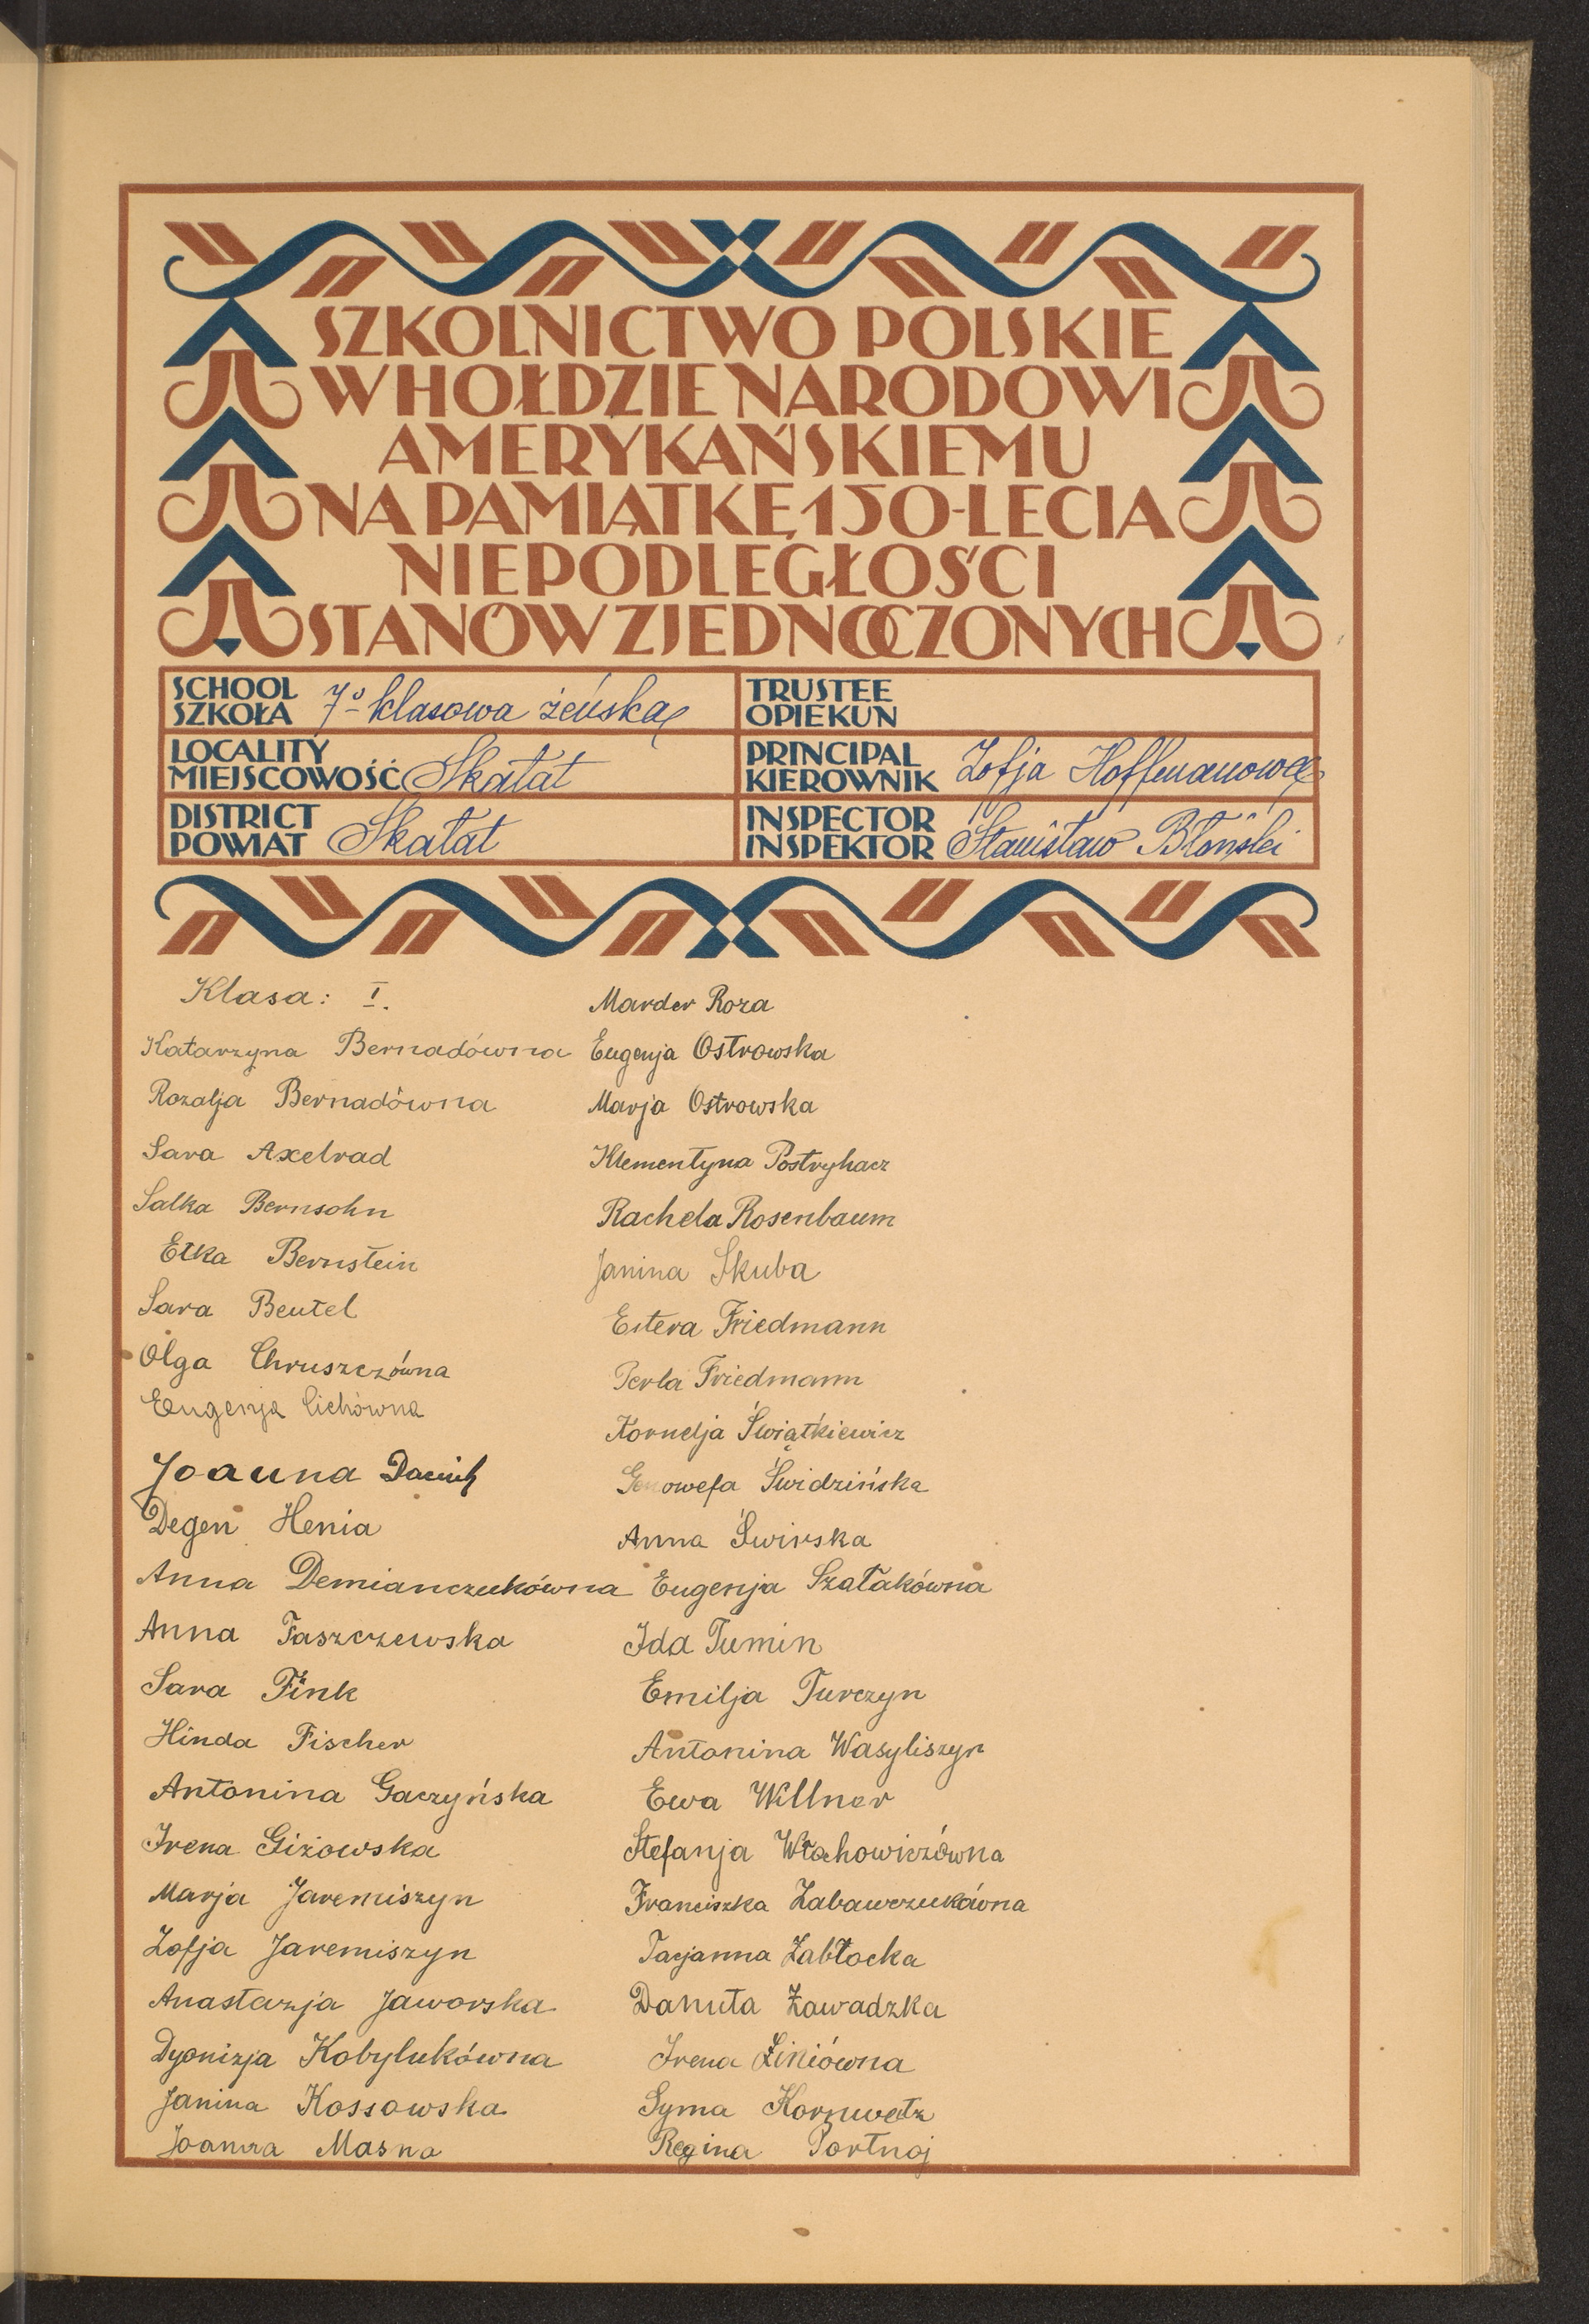 SZKOLNICTWO POLSKIE
W HOŁDZIE NARODOWI
AMERYKAŃSKIEMU
NA PAMIĄTKĘ 150-LECIA
NIEPODLEGŁOŚCI
STANÓW ZJEDNOCZONYCH
SCHOOL
SZKOŁA 7º klasowa żeńska
LOCALITY
MIEJSCOWOŚĆ Skałat
DISTRICT
POWIAT Skałat
TRUSTEE
OPIEKUN
PRINCIPAL
KIEROWNIK Zofja Hoffmanowa
INSPECTOR
INSPEKTOR Stanisław Błoński
Klasa: I.
Katarzyna Bernadówna
Rozalja Bernadówna
Sara Axelrad
Salka Bernsohn
Etka Bernstein
Sara Beutel
Olga Chruszczówna
Eugenja Cichówna
Joanna
Degen Henia
Anna Demianczukówna
Anna Faszczewska
Sara Fink
Hinda Fischer
Antonina Gaczyńska
Irena Giżowska
Marja Jaremiszyn
Zofja Jaremiszyn
Anastazja Jaworska
Dyonizja Kobylukówna
Janina Kossowska
Joanna Masna
Marder Roza
Eugenja Ostrowska
Marja Ostrowska
Klementyna Postryhacz
Rachela Rosenbaum
Janina Skuba
Estera Friedmann
Perla Friedmann
Kornelja Świątkiewicz
Genowefa Świdzińska
Anna Świrska
Eugenja Szałakówna
Ida Tumin
Emilja Turczyn
Antonina Wasyliszyn
Ewa Willner
Stefanja Włachowiczówna
Franciszka Zabawczukówna
Tacjanna Zabłocka
Danuta Zawadzka
Irena Ziniówna
Syma Kornweitz
Regina Portnoj